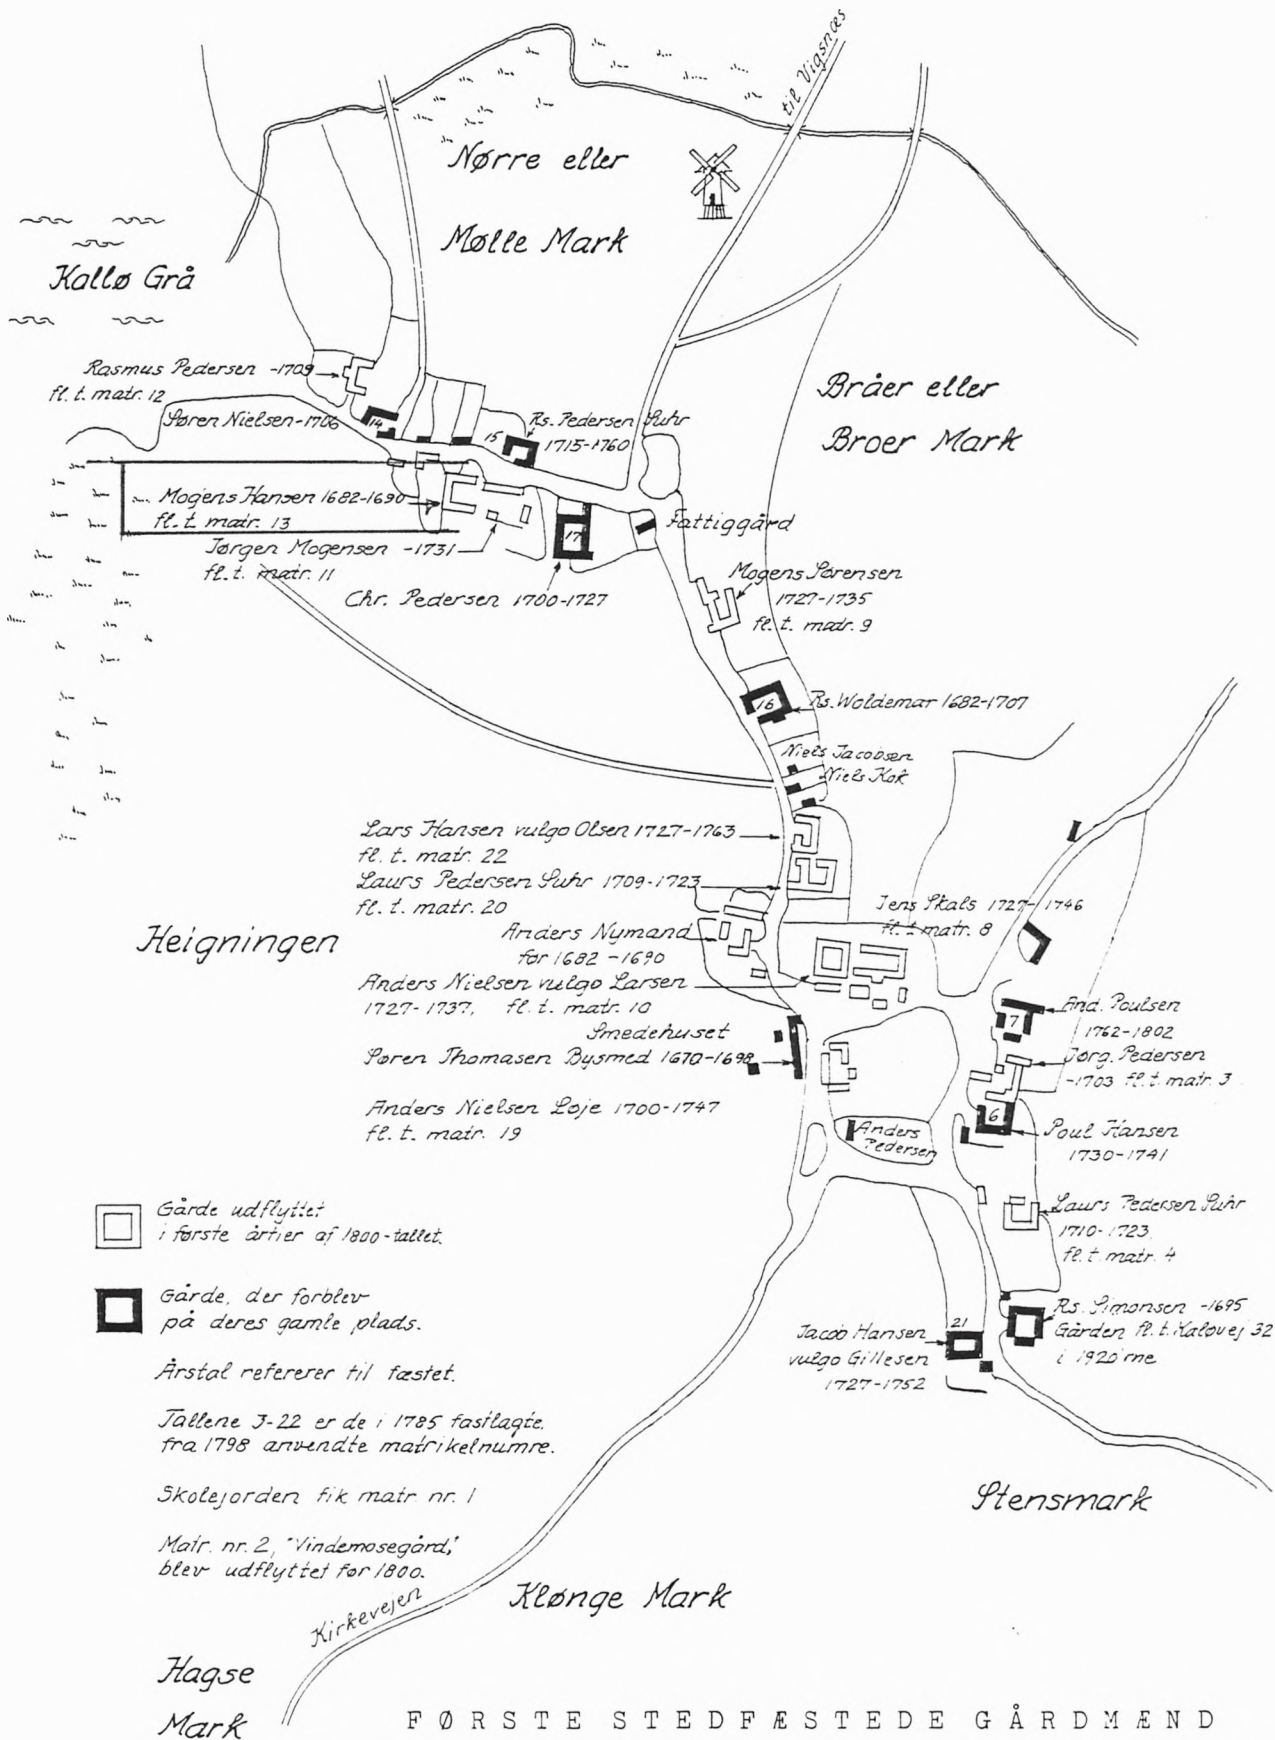 til Vigsnæs
Nørre eller
Mølle Mark
Kallø Grå
Rasmus Pedersen -1709
fl. t. matr. 12
Søren Nielsen -1706
14
15
Rs. Pedersen Suhr
1715-1760
Bråer eller
Broer Mark
Mogens Hansen 1682-1690
fl. t. matr. 13
Jørgen Mogensen -1731
fl. t. matr. 11
17
Chr. Pedersen 1700-1727
Fattiggård
Mogens Sørensen
1727-1735
fl. t. matr. 9
16
Rs. Woldemar 1682-1707
Niels Jacobsen
Niels Kok
Lars Hansen vulgo Olsen 1727-1763
fl. t. matr. 22
Laurs Pedersen Suhr 1709-1723
fl. t. matr. 20
Jens Skals 1727-1746
fl. t. matr. 8
Heigningen
Anders Nymand
før 1682 - 1690
Anders Nielsen vulgo Larsen
1727-1737, fl. t. matr. 10
Smedehuset
Søren Thomasen Bysmed 1670-1698
Anders Nielsen Loje 1700-1747
fl. t. matr. 19
7
And. Poulsen
1762-1802
Jørg. Pedersen
-1703 fl. t. matr. 3
6
Poul Hansen
1730-1741
Anders
Pedersen
Laurs Pedersen Suhr
1710-1723
fl. t. matr. 4
Rs. Simonsen -1695
Gården fl. t. Kaløvej 32
i 1920'rne
21
Jacob Hansen
vulgo Gillesen
1727-1752
Gårde udflyttet
i første årtier af 1800-tallet.
Gårde, der forblev
på deres gamle plads.
Årstal refererer til fæstet.
Tallene 3-22 er de i 1785 fastlagte.
fra 1798 anvendte matrikelnumre.
Skolejorden fik matr. nr. 1
Matr. nr. 2, "Vindemosegård,"
blev udflyttet før 1800.
Stensmark
Klønge Mark
Kirkevejen
Hagse
Mark
FØRSTE STEDFÆSTEDE GÅRDMÆND